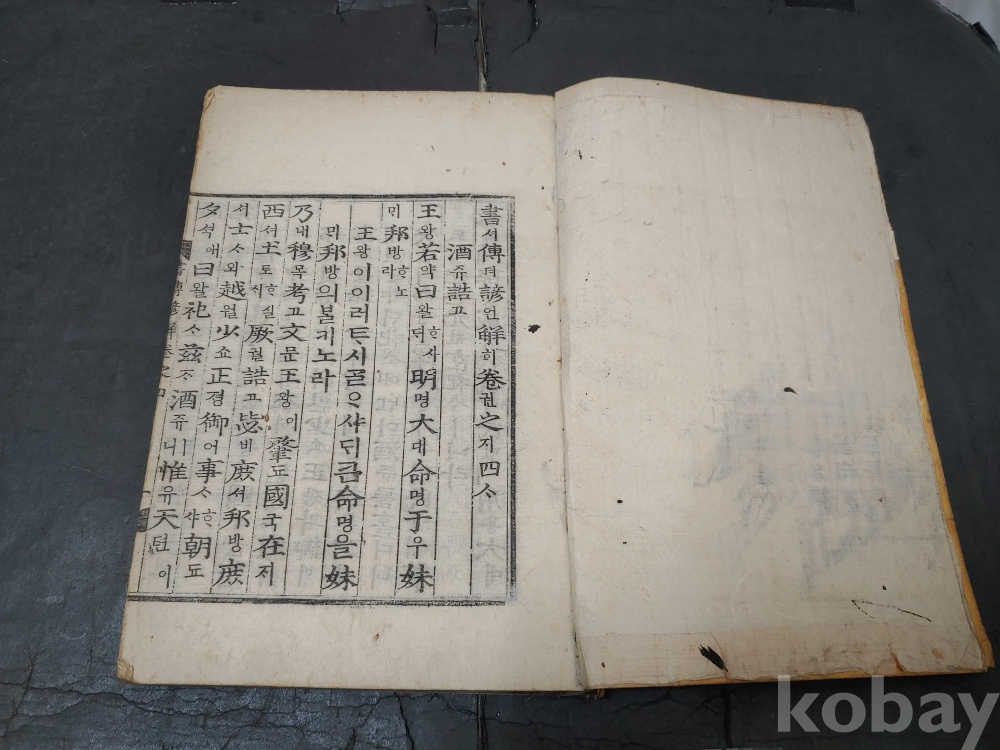 書셔傳뎐諺언解ᄒᆡ卷권之지四ᄉᆞ
酒쥬誥고
王왕若약曰왈ᄒᆞ샤ᄃᆡ明명大대命명于우妹
ᄆᆡ邦방ᄒᆞ노라
王왕이이러ᄐᆞ시ᄀᆞᆯᄋᆞ샤ᄃᆡ큰命명을妹
ᄆᆡ邦방의ᄇᆞᆯ기노라
乃내穆목考고文문王왕이肇됴國국在ᄌᆡ
西셔土토ᄒᆞ실ᄉᆡ厥궐誥고毖비庶셔邦방庶
셔士ᄉᆞ와越월少쇼正졍御어事ᄉᆞᄒᆞ샤朝됴
夕셕애曰왈祀ᄉᆞ玆ᄌᆞ酒쥬ㅣ니惟유天텬이
書傳諺解卷之四
一
kobay